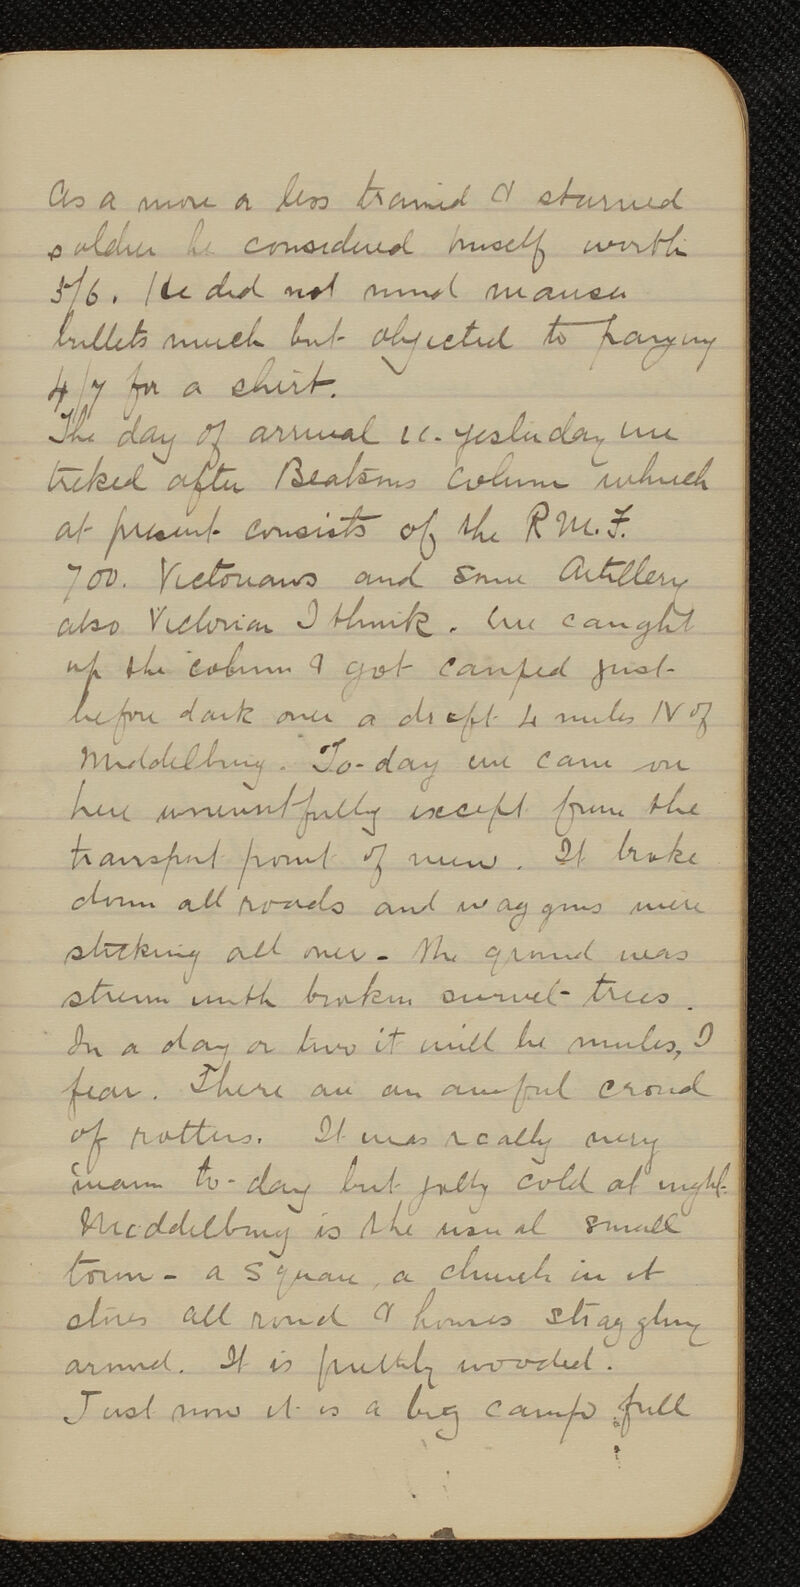 As a more or less trained & starved
soldier he considered himself worth
5/6. He did not mind mauser
bullets much but objected to paying
4/7 for a shirt.
The day of arrival ie. yesterday we
treked after Beatsons column which
at present consists of the R M. F.
700. Victorians and some Artillery
also Victorian I think. We caught
up the column & got camped just
before dark over a drift 4 miles N of
Middelburg. To-day we came on
here uneventfully except from the
transport point of view. It broke
down all roads and waggons were
sticking all over - the ground was
strewn with broken swivel trees.
In a day or two it will be mules, I
fear. There are an awful crowd
of rotters. It was really very
warm to-day but jolly cold at night.
Middelburg is the usual small
town - a square, a church in it
stores all round & houses straggling
around. It is prettily wooded.
Just now it is a big camp full